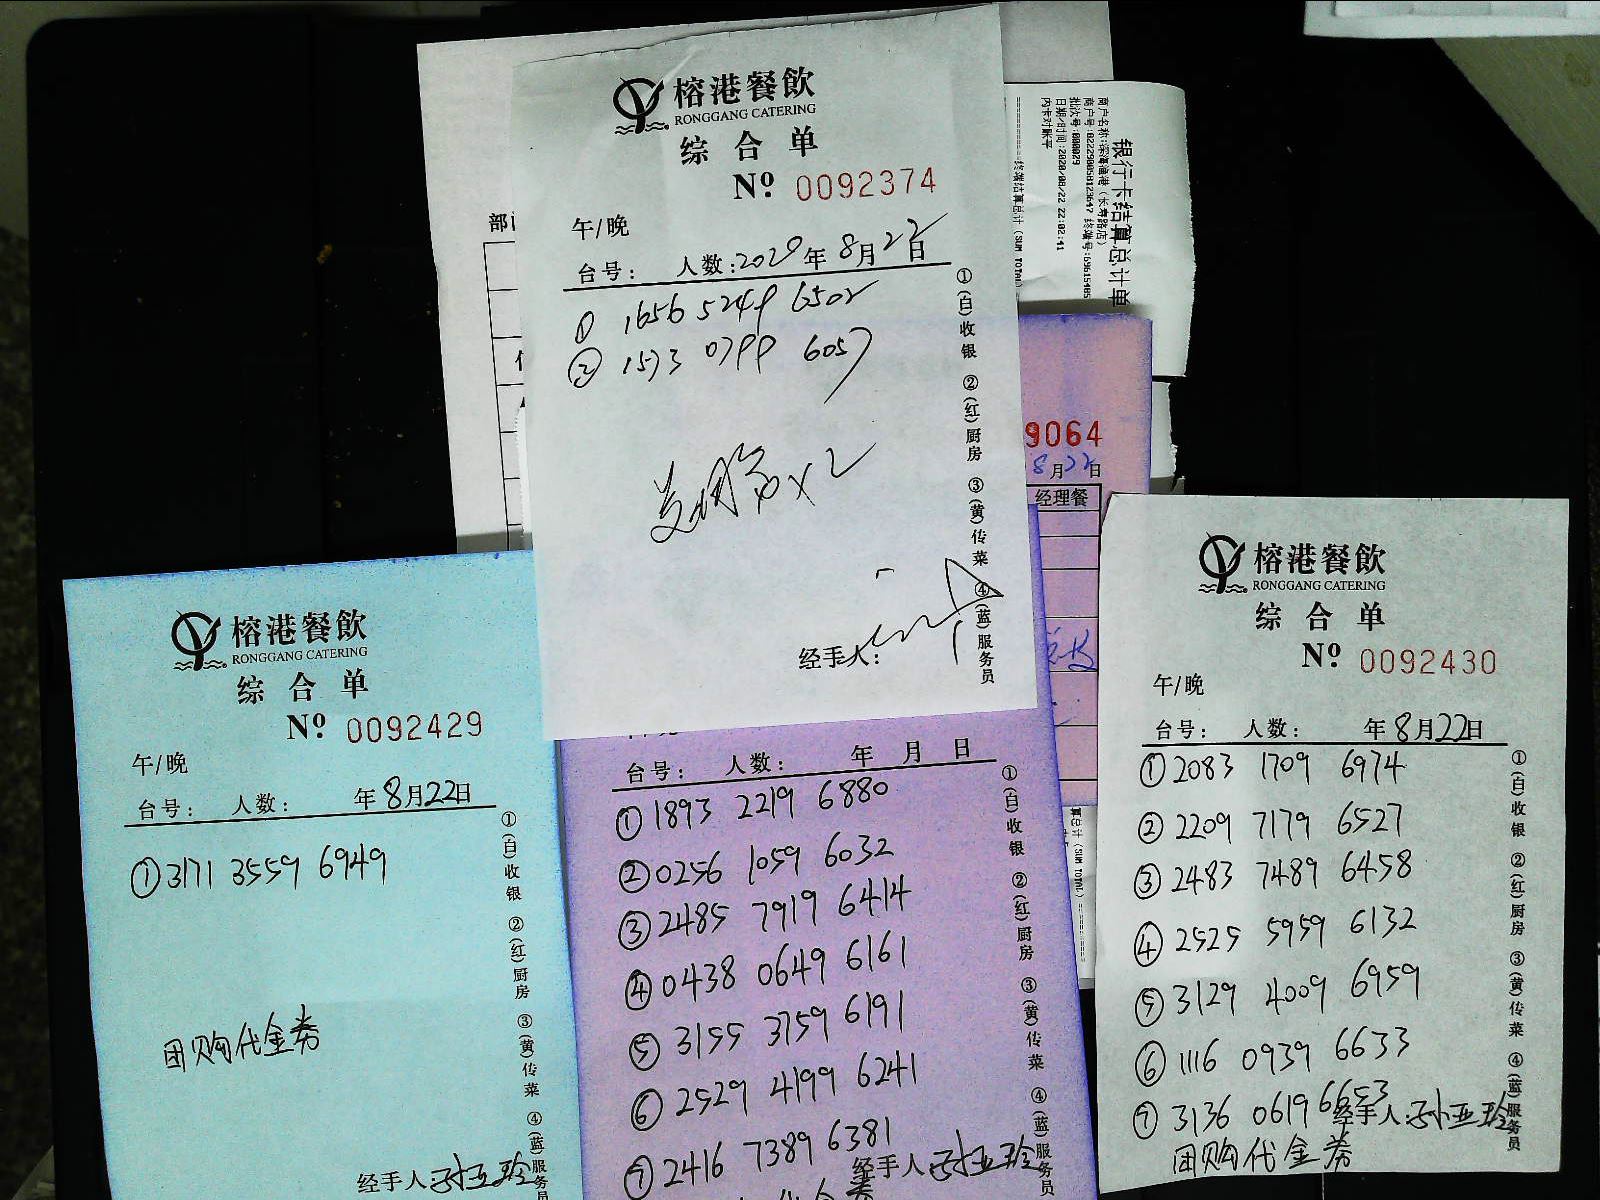 榕港餐飲
RONGGANG CATERING
综合单
Nº 0092374
午/晚
台号： 人数：2020年8月22日
① 1656 5249 6502
② 1573 0799 6057
×2
经手人：
①(白)收银 ②(红)厨房 ③(黄)传菜 ④(蓝)服务员
银行卡结算总计单
商户名称:深海渔港(长寿路店)
批次号:000029
日期/时间:2020/08/22 22:02:41
内卡对账平
终端结算总计 (SUM TOTAL)
9064
8月22日
经理餐
榕港餐飲
RONGGANG CATERING
综合单
Nº 0092429
午/晚
台号： 人数： 年8月22日
① 3171 3559 6949
团购代金券
经手人:孙亚玲
①(白)收银 ②(红)厨房 ③(黄)传菜 ④(蓝)服务员
台号： 人数： 年 月 日
① 1893 2219 6880
② 0256 1059 6032
③ 2485 7919 6414
④ 0438 0649 6161
⑤ 3155 3759 6191
⑥ 2529 4199 6241
⑦ 2416 7389 6381
经手人:孙亚玲
①(白)收银 ②(红)厨房 ③(黄)传菜 ④(蓝)服务员
算总计 (SUM TOTAL)
榕港餐飲
RONGGANG CATERING
综合单
Nº 0092430
午/晚
台号： 人数： 年8月22日
① 2083 1709 6974
② 2209 7179 6527
③ 2483 7489 6458
④ 2525 5959 6132
⑤ 3129 4009 6959
⑥ 1116 0939 6633
⑦ 3136 0619 6653
经手人:孙亚玲
团购代金券
①(白)收银 ②(红)厨房 ③(黄)传菜 ④(蓝)服务员